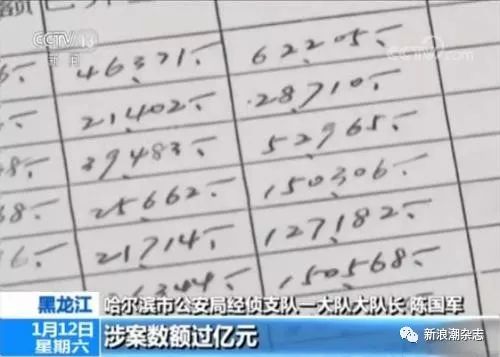 额
CCTV 13
新闻
央视网
46371.- 62205.-
21402.- 28710.-
39483.- 52965.-
8.- 25662.- 150306.-
68.- 21714.- 127182.-
6344.- 150568.-
黑龙江 哈尔滨市公安局经侦支队一大队大队长 陈国军
1月12日 涉案数额过亿元
星期六
新浪潮杂志